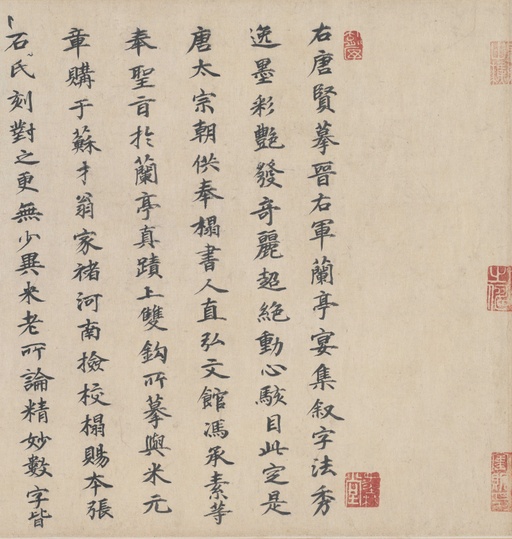 右唐賢摹晉右軍蘭亭宴集叙字法秀
逸墨彩艷發奇麗超絶動心駭目此定是
唐太宗朝供奉榻書人直弘文館馮承素等
奉聖旨於蘭亭真蹟上雙鈎所摹與米元
章購于蘇才翁家禇河南撿校榻賜本張
石氏刻對之更無少異米老所論精妙數字皆